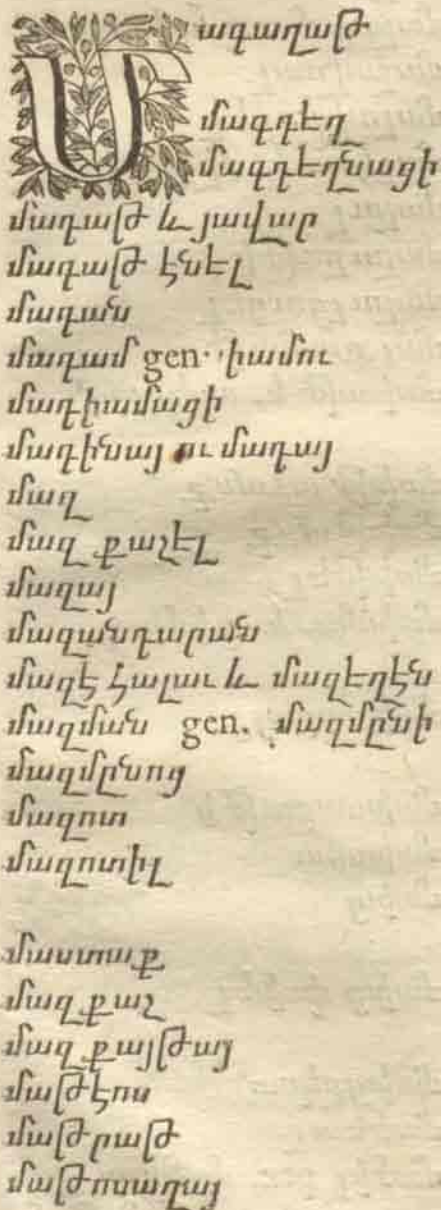 Մագաղաթ
մագդեղ
մագդեղնացի
մադաթ և յավար
մադաթ էնել
մադան
մադամ gen. իամու
մադիամացի
մադինայ ու մադայ
մազ
մազ քաշել
մազայ
մազանդարան
մազէ հալաւ և մազեղէն
մազման gen. մազմընի
մազմընոց
մազոտ
մազոտիլ
մաստաք
մազ քաշ
մազ քայթայ
մաթէոս
մաթրաթ
մաթոսաղայ